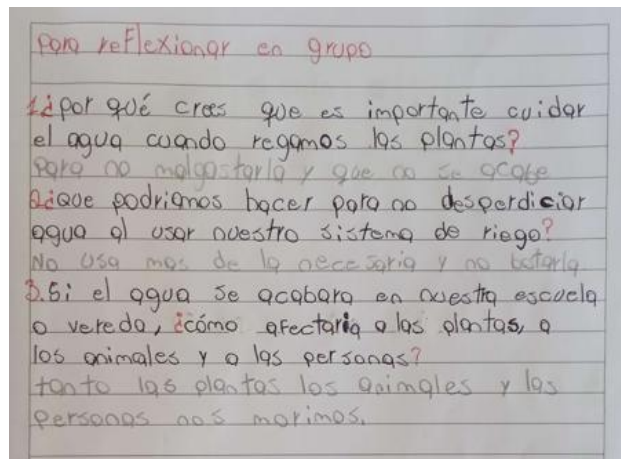 para reflexionar en grupo
1.¿por qué crees que es importante cuidar
el agua cuando regamos las plantas?
Para no malgastarla y que no se acabe
2.¿Que podriamos hacer para no desperdiciar
agua al usar nuestro sistema de riego?
No usa mas de la necesaria y no botarla
3.Si el agua se acabara en nuestra escuela
o vereda, ¿cómo afectaria a las plantas, a
los animales y a las personas?
tanto las plantas los animales y las
personas nos morimos.